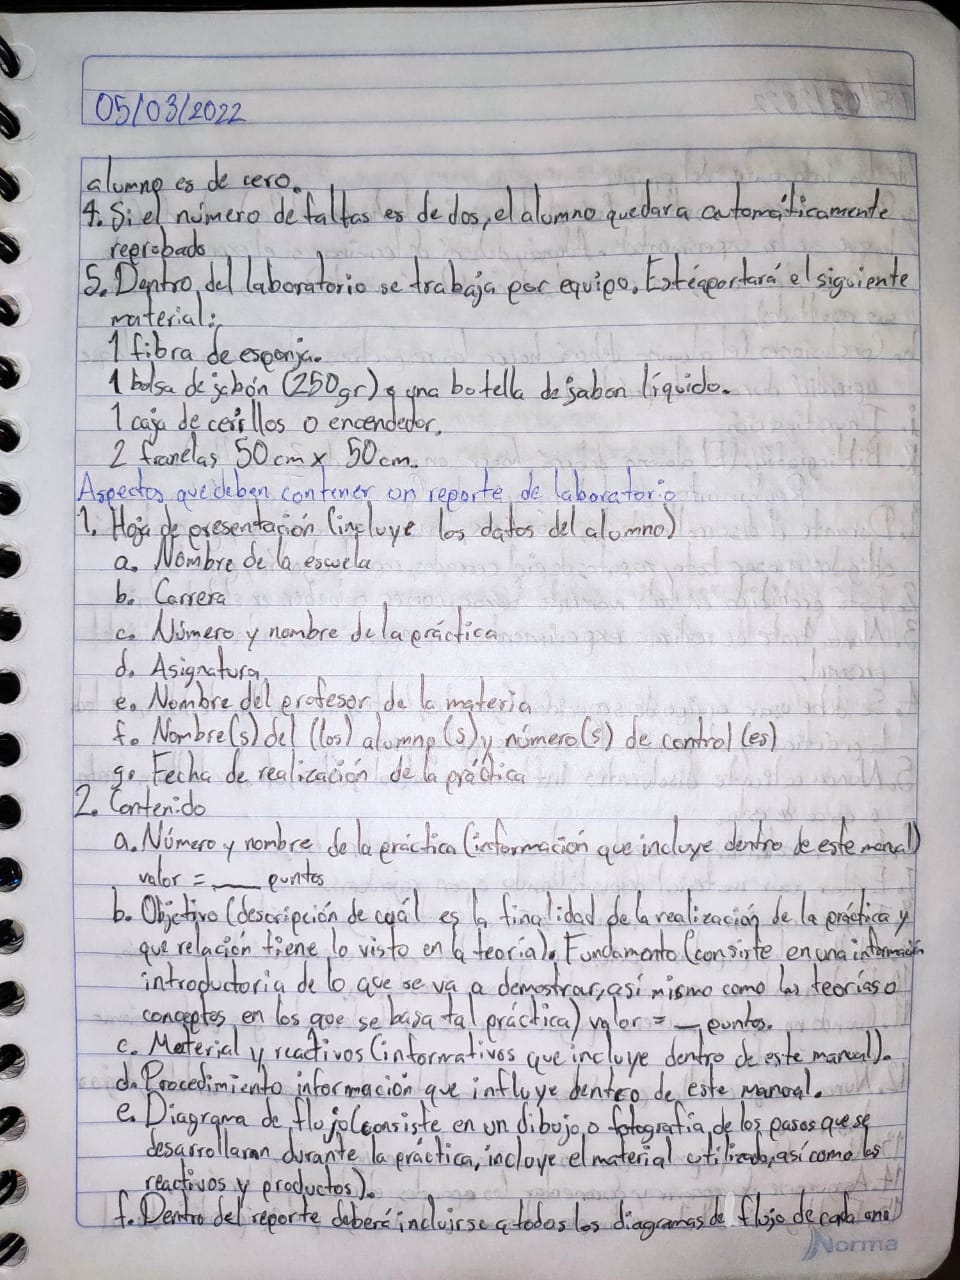 05/03/2022
alumno es de cero.
4. Si el número de faltas es de dos, el alumno quedara automáticamente
reprobado
5. Dentro del laboratorio se trabaja por equipo. Este aportará el siguiente
material:
1 fibra de esponja.
1 bolsa de jabón (250gr) y una botella de jabon líquido.
1 caja de cerillos o encendedor.
2 franelas 50cm x 50cm.
Aspectos que deben contener un reporte de laboratorio
1. Hoja de presentación (incluye los datos del alumno)
a. Nombre de la escuela
b. Carrera
c. Número y nombre de la práctica
d. Asignatura
e. Nombre del profesor de la materia
f. Nombre(s) del (los) alumno(s) y número(s) de control(es)
g. Fecha de realización de la práctica
2. Contenido
a. Número y nombre de la práctica (información que incluye dentro de este manual)
valor = ___ puntos
b. Objetivo (descripción de cuál es la finalidad de la realización de la práctica y
que relación tiene lo visto en la teoría). Fundamento (consiste en una información
introductoria de lo que se va a demostrar, así mismo como las teorías o
conceptos en los que se basa tal práctica) valor = __ puntos.
c. Material y reactivos (informativos que incluye dentro de este manual).
d. Procedimiento información que influye dentro de este manual.
e. Diagrama de flujo (consiste en un dibujo o fotografía de los pasos que se
desarrollaran durante la práctica, incluye el material utilizado, así como los
reactivos y productos).
f. Dentro del reporte deberá incluirse a todos los diagramas de flujo de cada una
Norma